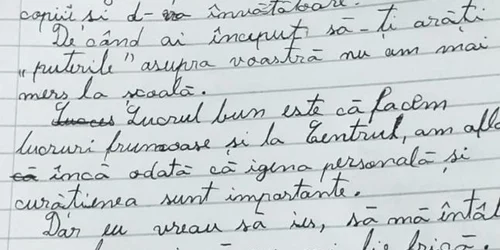 copiii si d-na învătătoare.
De când ai început să-ti arăti
"puterile" asupra voastră nu am mai
mers la scoală.
Lucrul bun este că facem
lucruri frumoase si la Centrul, am afla
încă odată că igena personală si
curătienea sunt importante.
Dar eu vreau să ies, să mă întâl
frică